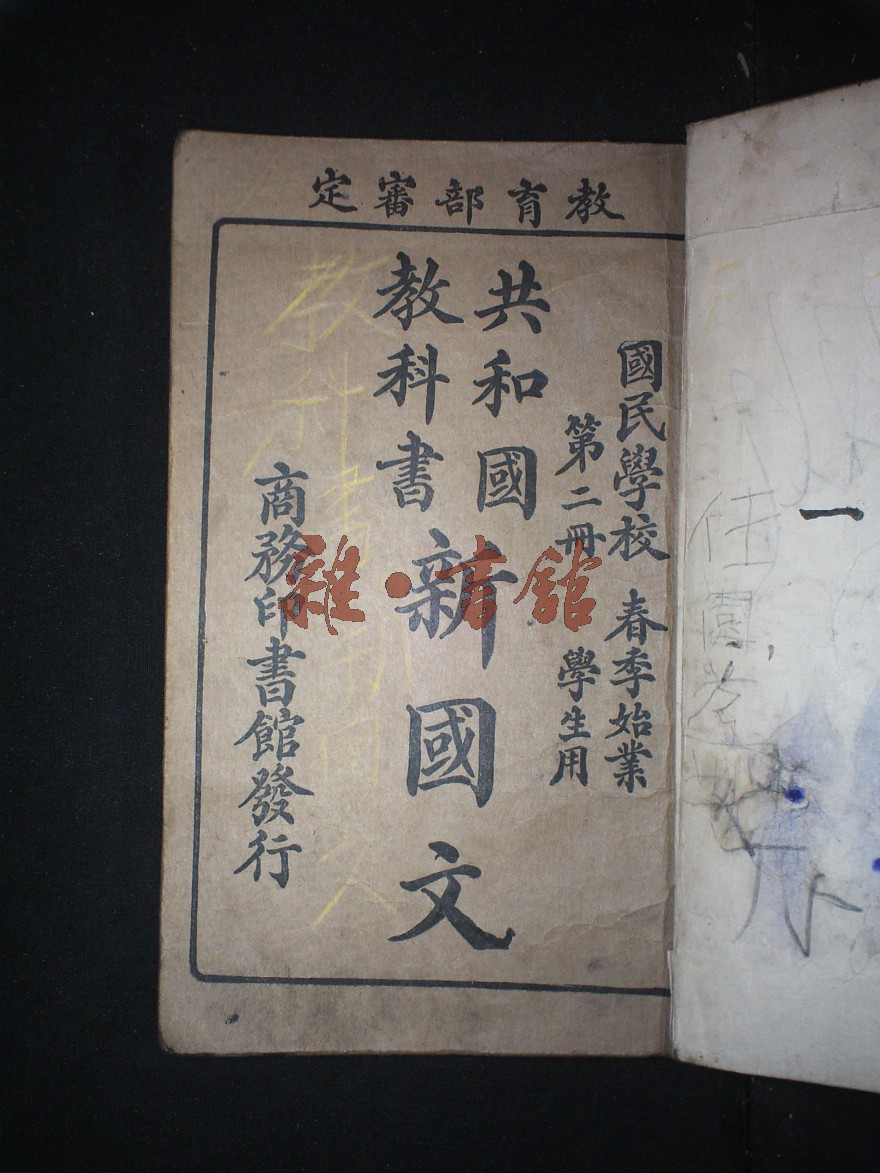 教育部審定
國民學校 春季始業
第二冊 學生用
共和國
教科書 新國文
商務印書館發行
教科書新国文
雜·書館
一